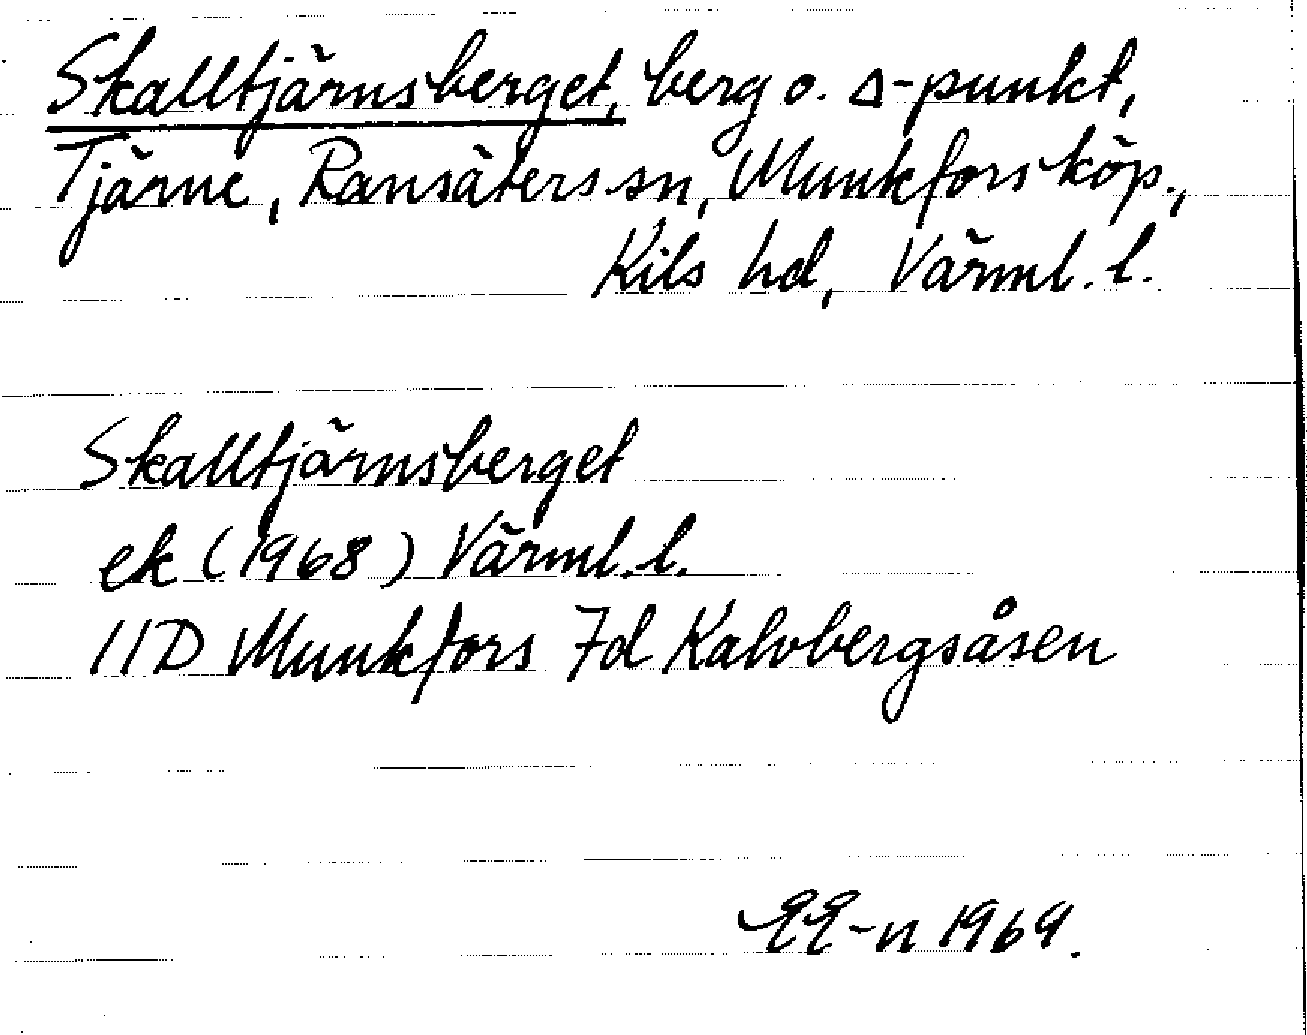 Skalltjärnsberget, berg o. △-punkt,
Tjärne, Ransäters sn, Munkfors köp.,
Kils hd, Värml. l.
Skalltjärnsberget
ek (1968) Värml. l.
11D Munkfors 7d Kalvbergsåsen
EE-n 1969.